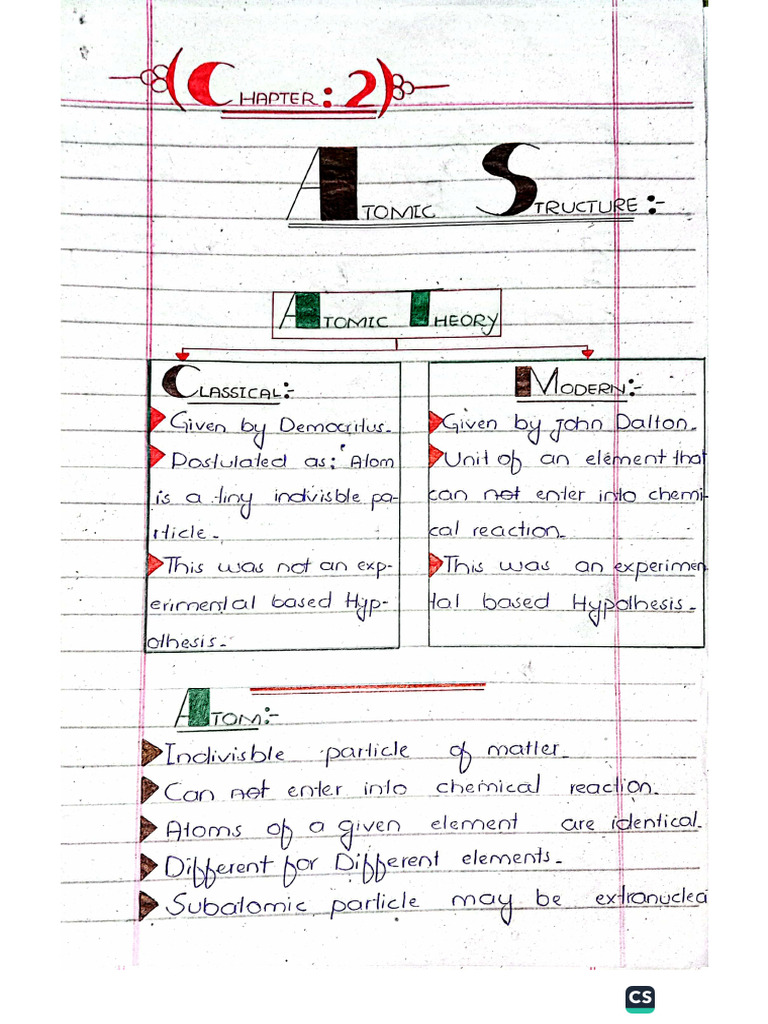 CHAPTER: 2
ATOMIC STRUCTURE:-
ATOMIC THEORY
CLASSICAL:-
Given by Democritus.
Postulated as: "Atom
is a tiny indivisble pa-
rticle.
This was not an exp-
erimental based Hyp-
othesis.
MODERN:-
Given by John Dalton.
Unit of an element that
can not enter into chemi-
cal reaction.
This was an experimen
tal based Hypothesis.
ATOM:-
Indivisble particle of matter.
Can not enter into chemical reaction.
Atoms of a given element are identical.
Different for Different elements.
Subatomic particle may be extranuclea
CS